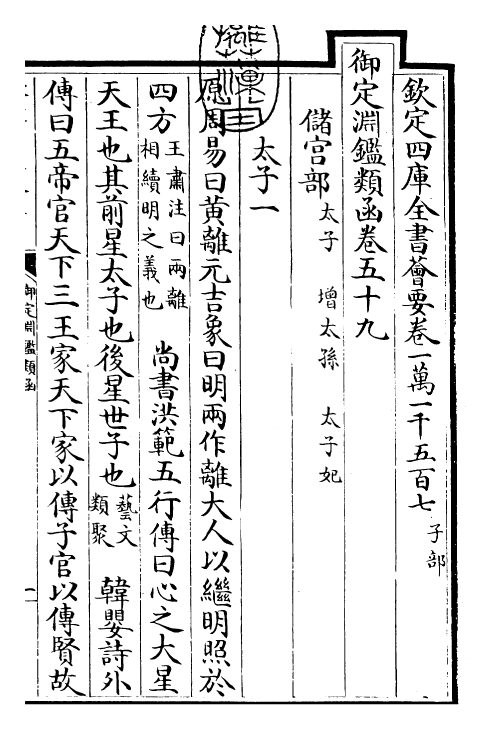 欽定四庫全書薈要卷一萬一千五百七子部
御定淵鑑類函卷五十九
儲宫部太子 增太孫 太子妃
太子一
原周易曰黄離元吉象曰明兩作離大人以繼明照於
四方王肅注曰兩離相續明之義也 尚書洪範五行傳曰心之大星
天王也其前星太子也後星世子也藝文類聚 韓嬰詩外
傳曰五帝官天下三王家天下家以傳子官以傳賢故
御定淵鑑類函
一